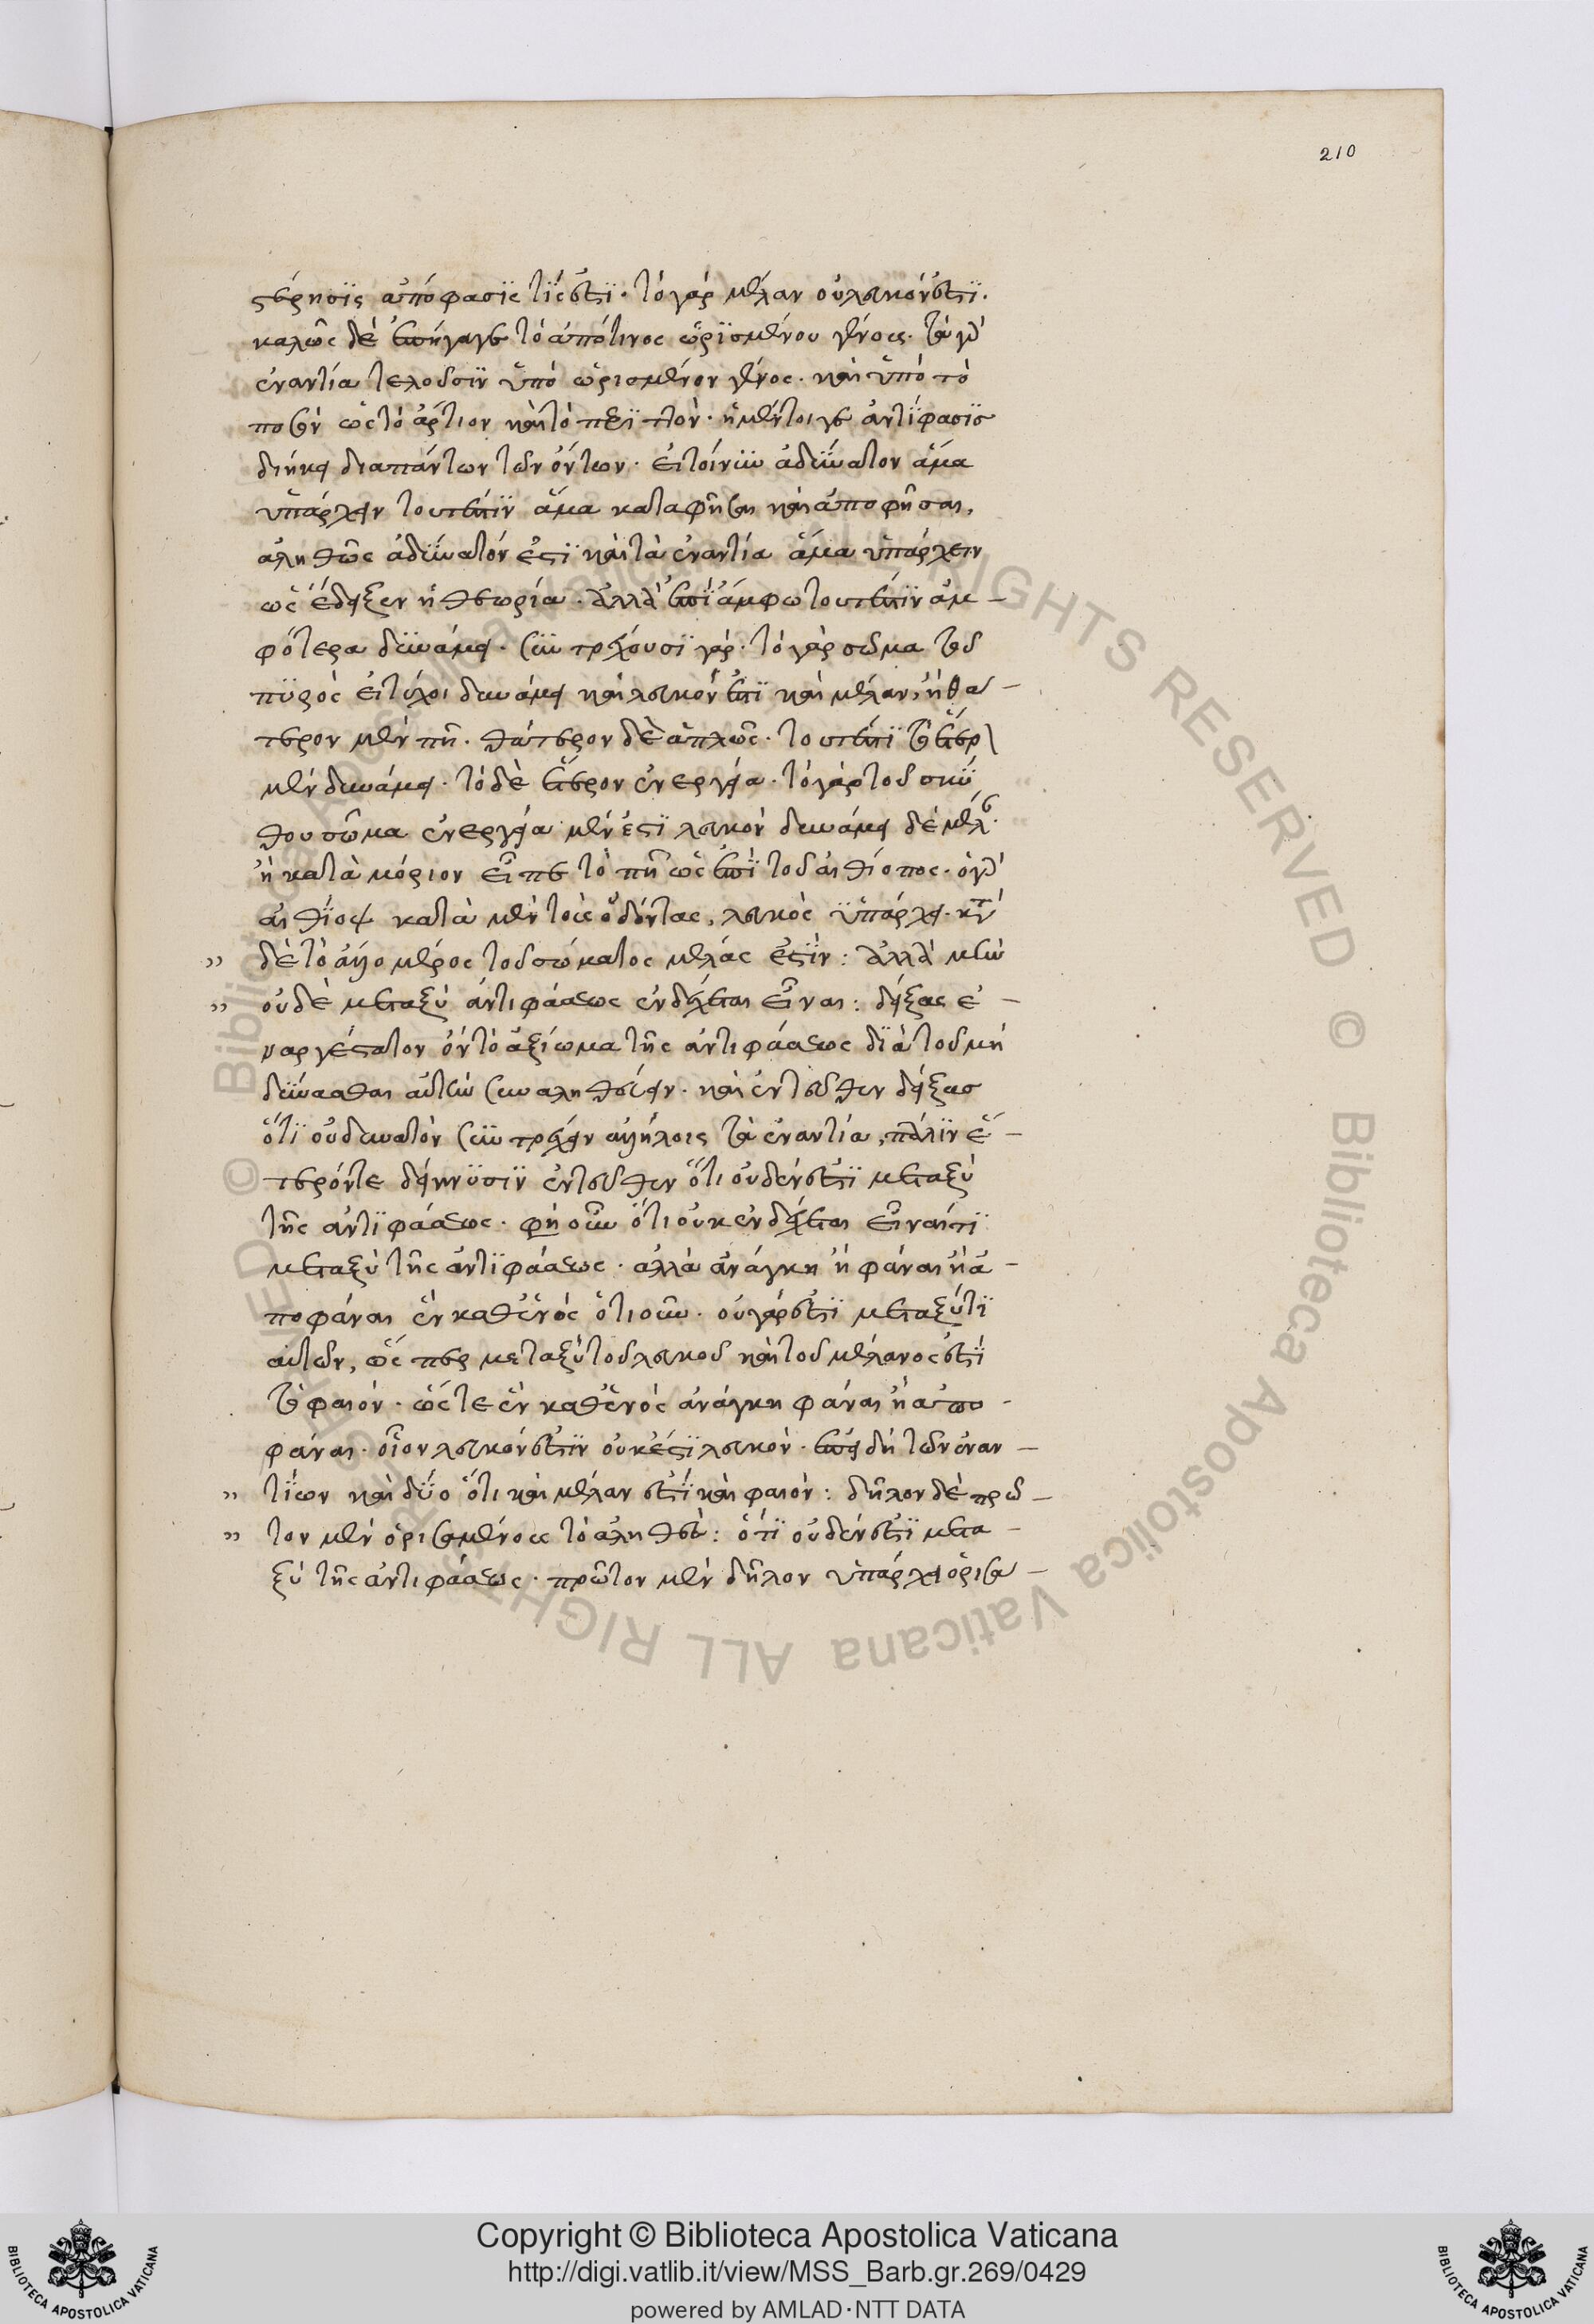 210
στέρησις ἀπόφασίς τίς ἐστι· τὸ γὰρ μέλαν οὐ λευκόν ἐστι.
καλῶς δὲ ἐπήγαγε τὸ ἀπό τινος ὡρισμένου γένους. τὰ γὰρ
ἐναντία τελοῦσιν ὑπὸ ὡρισμένον γένος. καὶ ὑπὸ τὸ
ποσὸν ὡς τὸ ἄρτιον καὶ τὸ περιττόν. ἡ μέντοι γε ἀντίφασις
διήκει διὰ πάντων τῶν ὄντων. εἰ τοίνυν ἀδύνατον ἅμα
ὑπάρχειν τουτέστιν ἅμα καταφῆσαι καὶ ἀποφῆσαι,
ἀληθῶς ἀδύνατόν ἐστι καὶ τὰ ἐναντία ἅμα ὑπάρχειν
ὡς ἔδειξεν ἡ θεωρία. ἀλλ' ἐπὶ ἄμφω τουτέστιν ἀμ-
φότερα δυνάμει. συντρέχουσι γάρ. τὸ γὰρ σῶμα τοῦ
πυρὸς εἰ τύχοι δυνάμει καὶ λευκόν ἐστι καὶ μέλαν, ἢ θά-
τερον μὲν πῆ. θάτερον δὲ ἁπλῶς. τουτέστι τὸ ἕτερον
μὲν δυνάμει. τὸ δὲ ἕτερον ἐνεργεία. τὸ γὰρ τοῦ σκύ
θου σῶμα ἐνεργεία μέν ἐστι λευκὸν δυνάμει δὲ μέλαν.
ἢ κατὰ μόριον εἶπε τὸ πῆ ὡς ἐπὶ τοῦ αἰθίοπος. ὁ γὰρ
αἰθίοψ κατὰ μὲν τοὺς ὀδόντας, λευκὸς ὑπάρχει. κατὰ
" δὲ τὸ ἄλλο μέρος τοῦ σώματος μέλας ἐστίν: ἀλλὰ μὴν
" οὐδὲ μεταξὺ ἀντιφάσεως ἐνδέχεται εἶναι: δείξας ἐ-
ναργέστατον ὂν τὸ ἀξίωμα τῆς ἀντιφάσεως διὰ τοῦ μὴ
δύνασθαι αὐτὴν συναληθεύειν. καὶ ἐντεῦθεν δείξας
ὅτι οὐ δυνατὸν συντρέχειν ἀλλήλοις τὰ ἐναντία, πάλιν ἕ-
τερόν τε δείκνυσιν ἐντεῦθεν ὅτι οὐδέν ἐστι μεταξὺ
τῆς ἀντιφάσεως. φησὶ οὖν ὅτι οὐκ ἐνδέχεται εἶναί τι
μεταξὺ τῆς ἀντιφάσεως. ἀλλὰ ἀνάγκη ἢ φάναι ἢ ἀ-
ποφάναι ἓν καθ' ἑνὸς ὁτιοῦν. οὐ γάρ ἐστι μεταξύ τι
αὐτῶν, ὥσπερ μεταξὺ τοῦ λευκοῦ καὶ τοῦ μέλανος ἐστὶ
τὸ φαιόν. ὥστε ἓν καθ' ἑνὸς ἀνάγκη φάναι ἢ ἀπο-
φάναι. οἷον λευκόν ἐστιν οὐκ ἔστι λευκόν. ἐπεὶ δὴ τῶν ἐναν-
" τίων καὶ δύο ὅτι καὶ μέλαν ἐστὶ καὶ φαιόν: δῆλον δὲ πρῶ-
" τον μὲν ὁρισαμένοις τὸ ἀληθές: ὅτι οὐδέν ἐστι μετα-
ξὺ τῆς ἀντιφάσεως. πρῶτον μὲν δῆλον ὑπάρχει ὁρισα-
Copyright © Biblioteca Apostolica Vaticana
http://digi.vatlib.it/view/MSS_Barb.gr.269/0429
powered by AMLAD·NTT DATA